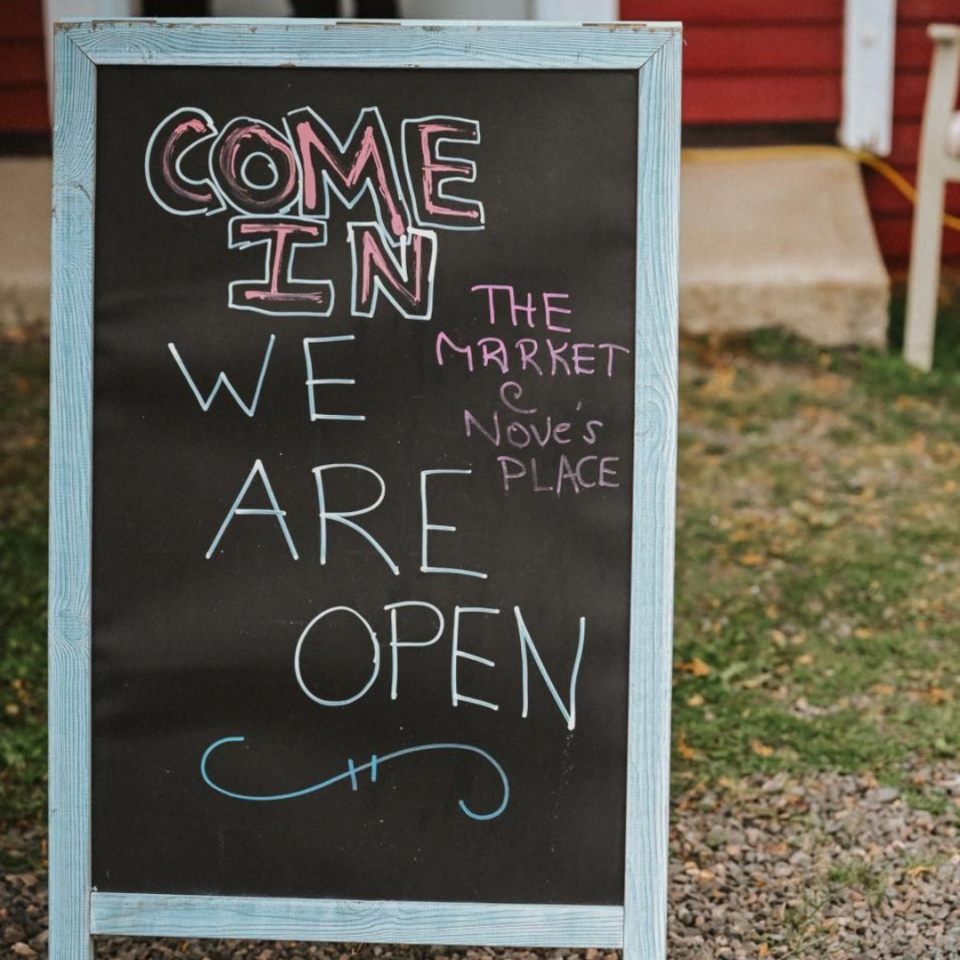 COME
IN
WE
ARE
OPEN
THE
MARKET
&
Nove's
PLACE